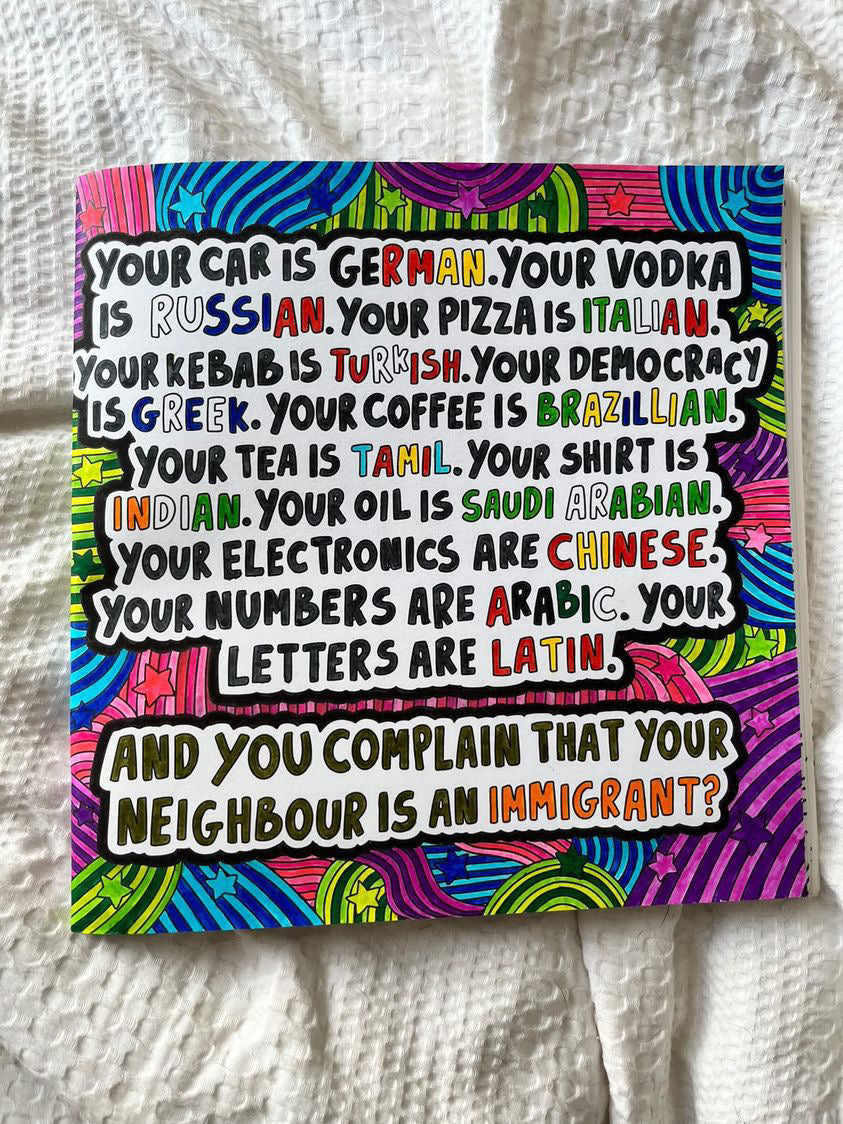 YOUR CAR IS GERMAN. YOUR VODKA
IS RUSSIAN. YOUR PIZZA IS ITALIAN.
YOUR KEBAB IS TURKISH. YOUR DEMOCRACY
IS GREEK. YOUR COFFEE IS BRAZILLIAN.
YOUR TEA IS TAMIL. YOUR SHIRT IS
INDIAN. YOUR OIL IS SAUDI ARABIAN.
YOUR ELECTRONICS ARE CHINESE.
YOUR NUMBERS ARE ARABIC. YOUR
LETTERS ARE LATIN.
AND YOU COMPLAIN THAT YOUR
NEIGHBOUR IS AN IMMIGRANT?